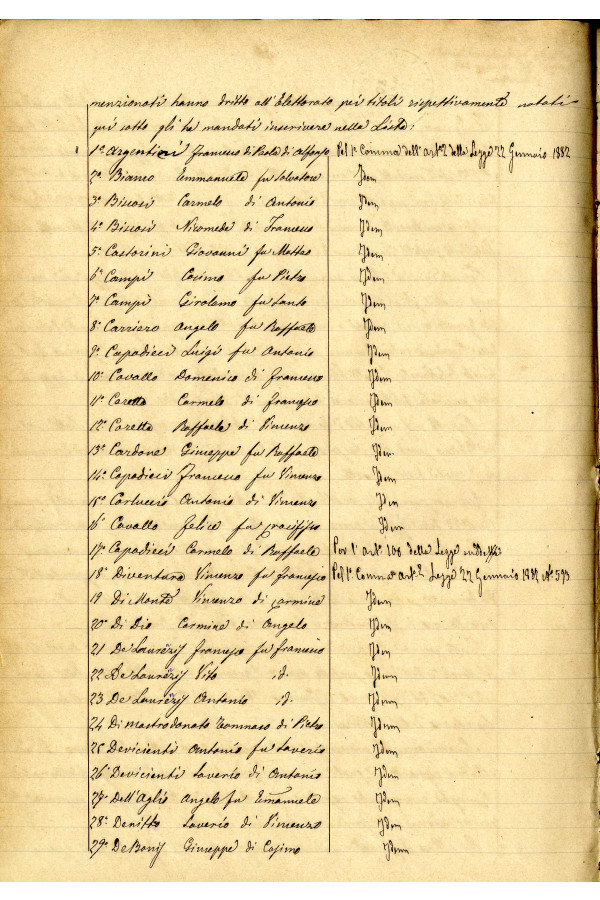 menzionati hanno dritto all'Elettorato pei titoli rispettivamente notati
qui sotto gli ha mandati inscrivere nella Lista:
1° Argentieri Francesco di Paola di Alfonso Pel 1° Comma dell'art° 2 della Legge 22 Gennaio 1882
2° Bianco Emmanuele fu Salvatore Idem
3° Biscosi Carmelo di Antonio Idem
4° Biscosi Nicomede di Francesco Idem
5° Castorini Giovanni fu Matteo Idem
6° Campi Cosimo fu Pietro Idem
7° Campi Girolamo fu Santo Idem
8° Carriero Angelo fu Raffaele Idem
9° Capodieci Luigi fu Antonio Idem
10° Cavallo Domenico di Francesco Idem
11° Caretta Carmelo di Francesco Idem
12° Caretta Raffaele di Vincenzo Idem
13° Cardone Giuseppe fu Raffaele Idem
14° Capodieci Francesco fu Vincenzo Idem
15° Carluccio Antonio di Vincenzo Idem
16° Cavallo Felice fu Idem
17° Capodieci Carmelo di Raffaele Per l'art° 100 della Legge
18° Diventura Vincenzo fu Francesco Pel 1° Comma art° 2 Legge 22 Gennaio 1882 N° 593
19 Di Monte Vincenzo di Carmine Idem
20° Di Dio Carmine di Angelo Idem
21 De Laurezij Francesco fu Francesco Idem
22 De Laurezij Vito id. Idem
23 De Laurezij Antonio id. Idem
24 Di Mastrodonato Tommaso di Pietro Idem
25 Devicienti Antonio fu Saverio Idem
26° Devicienti Saverio di Antonio Idem
27° Dell'Aglio Angelo fu Emanuele Idem
28° Denitto Saverio di Vincenzo Idem
29° De Bonij Giuseppe di Cosimo Idem